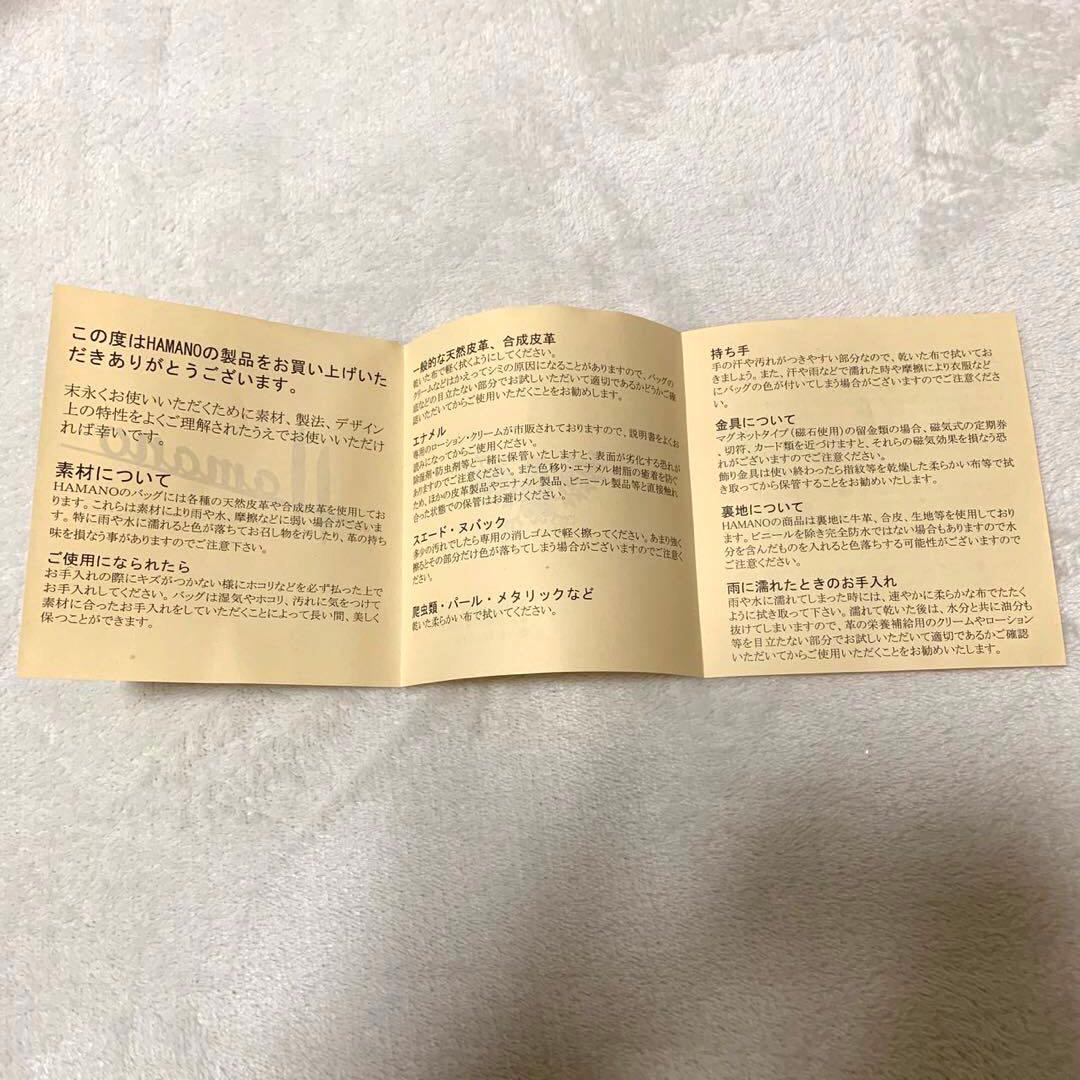 この度はHAMANOの製品をお買い上げいた
だきありがとうございます。
末永くお使いいただくために素材、製法、デザイン
上の特性をよくご理解されたうえでお使いいただけ
れば幸いです。
素材について
HAMANOのバッグには各種の天然皮革や合成皮革を使用してお
ります。これらは素材により雨や水、摩擦などに弱い場合がございま
す。特に雨や水に濡れると色が落ちてお召し物を汚したり、革の持ち
味を損なう事がありますのでご注意下さい。
ご使用になられたら
お手入れの際にキズがつかない様にホコリなどを必ず払った上で
お手入れしてください。バッグは湿気やホコリ、汚れに気をつけて
素材に合ったお手入れをしていただくことによって長い間、美しく
保つことができます。
一般的な天然皮革、合成皮革
乾いた布で軽く拭くようにしてください。
クリームなどはかえってシミの原因になることがありますので、バッグの
底などの目立たない部分でお試しいただいて適切であるかどうかご確
認いただいてからご使用いただくことをお勧めします。
エナメル
専用のローション・クリームが市販されておりますので、説明書をよくお
読みになってからご使用ください。
除湿剤・防虫剤等と一緒に保管いたしますと、表面が劣化する恐れが
ありますのでご注意ください。また色移り・エナメル樹脂の癒着を防ぐ
ため、ほかの皮革製品やエナメル製品、ビニール製品等と直接触れ
合った状態での保管はお避けください。
スエード・ヌバック
多少の汚れでしたら専用の消しゴムで軽く擦ってください。あまり強く
擦るとその部分だけ色が落ちてしまう場合がございますのでご注意く
ださい。
爬虫類・パール・メタリックなど
乾いた柔らかい布で拭いてください。
持ち手
手の汗や汚れがつきやすい部分なので、乾いた布で拭いてお
きましょう。また、汗や雨などで濡れた時や摩擦により衣服など
にバッグの色が付いてしまう場合がございますのでご注意くださ
い。
金具について
マグネットタイプ(磁石使用)の留金類の場合、磁気式の定期券
、切符、カード類を近づけますと、それらの磁気効果を損なう恐
れがございますのでご注意ください。
飾り金具は使い終わったら指紋等を乾燥した柔らかい布等で拭
き取ってから保管することをお勧めいたします。
裏地について
HAMANOの商品は裏地に牛革、合皮、生地等を使用しており
ます。ビニールを除き完全防水ではない場合もありますので水
分を含んだものを入れると色落ちする可能性がございますので
ご注意ください。
雨に濡れたときのお手入れ
雨や水に濡れてしまった時には、速やかに柔らかな布でたたく
ように拭き取って下さい。濡れて乾いた後は、水分と共に油分も
抜けてしまいますので、革の栄養補給用のクリームやローション
等を目立たない部分でお試しいただいて適切であるかご確認
いただいてからご使用いただくことをお勧めいたします。